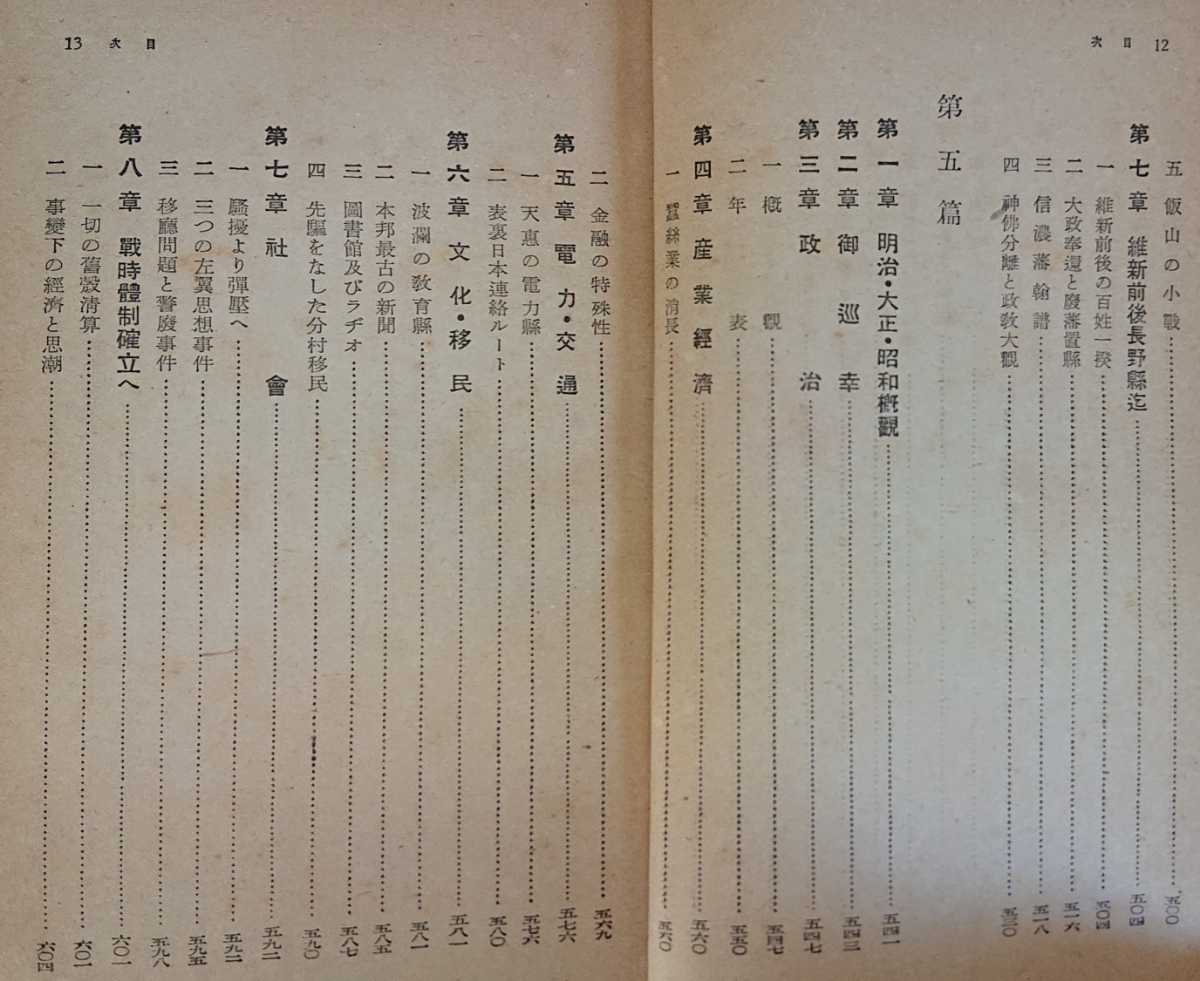 目次 12
五 飯山の小戰……五〇〇
第七章 維新前後長野縣迄……五〇四
一 維新前後の百姓一揆……五〇四
二 大政奉還と廢藩置縣……五一六
三 信濃藩翰譜……五一八
四 神佛分離と政敎大觀……五三〇
第五篇
第一章 明治・大正・昭和槪觀……五四一
第二章 御巡幸……五四三
第三章 政治……五四七
一 槪觀……五四七
二 年表……五五〇
第四章 産業經濟……五六〇
一 蠶絲業の消長……五六〇
目次 13
二 金融の特殊性……五六九
第五章 電力・交通……五七六
一 天惠の電力縣……五七六
二 表裏日本連絡ルート……五八〇
第六章 文化・移民……五八一
一 波瀾の敎育縣……五八一
二 本邦最古の新聞……五八五
三 圖書館及びラヂオ……五八七
四 先驅をなした分村移民……五九〇
第七章 社會……五九二
一 騷擾より彈壓へ……五九二
二 三つの左翼思想事件……五九五
三 移廳問題と警廢事件……五九八
第八章 戰時體制確立へ……六〇一
一 一切の舊殼淸算……六〇一
二 事變下の經濟と思潮……六〇四